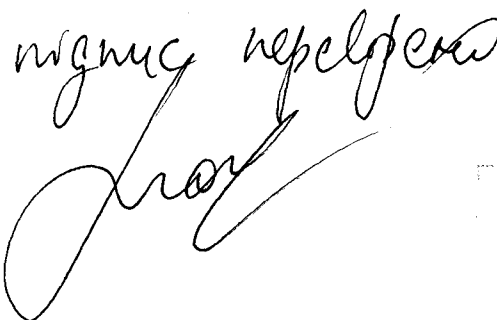 підпис перевірено